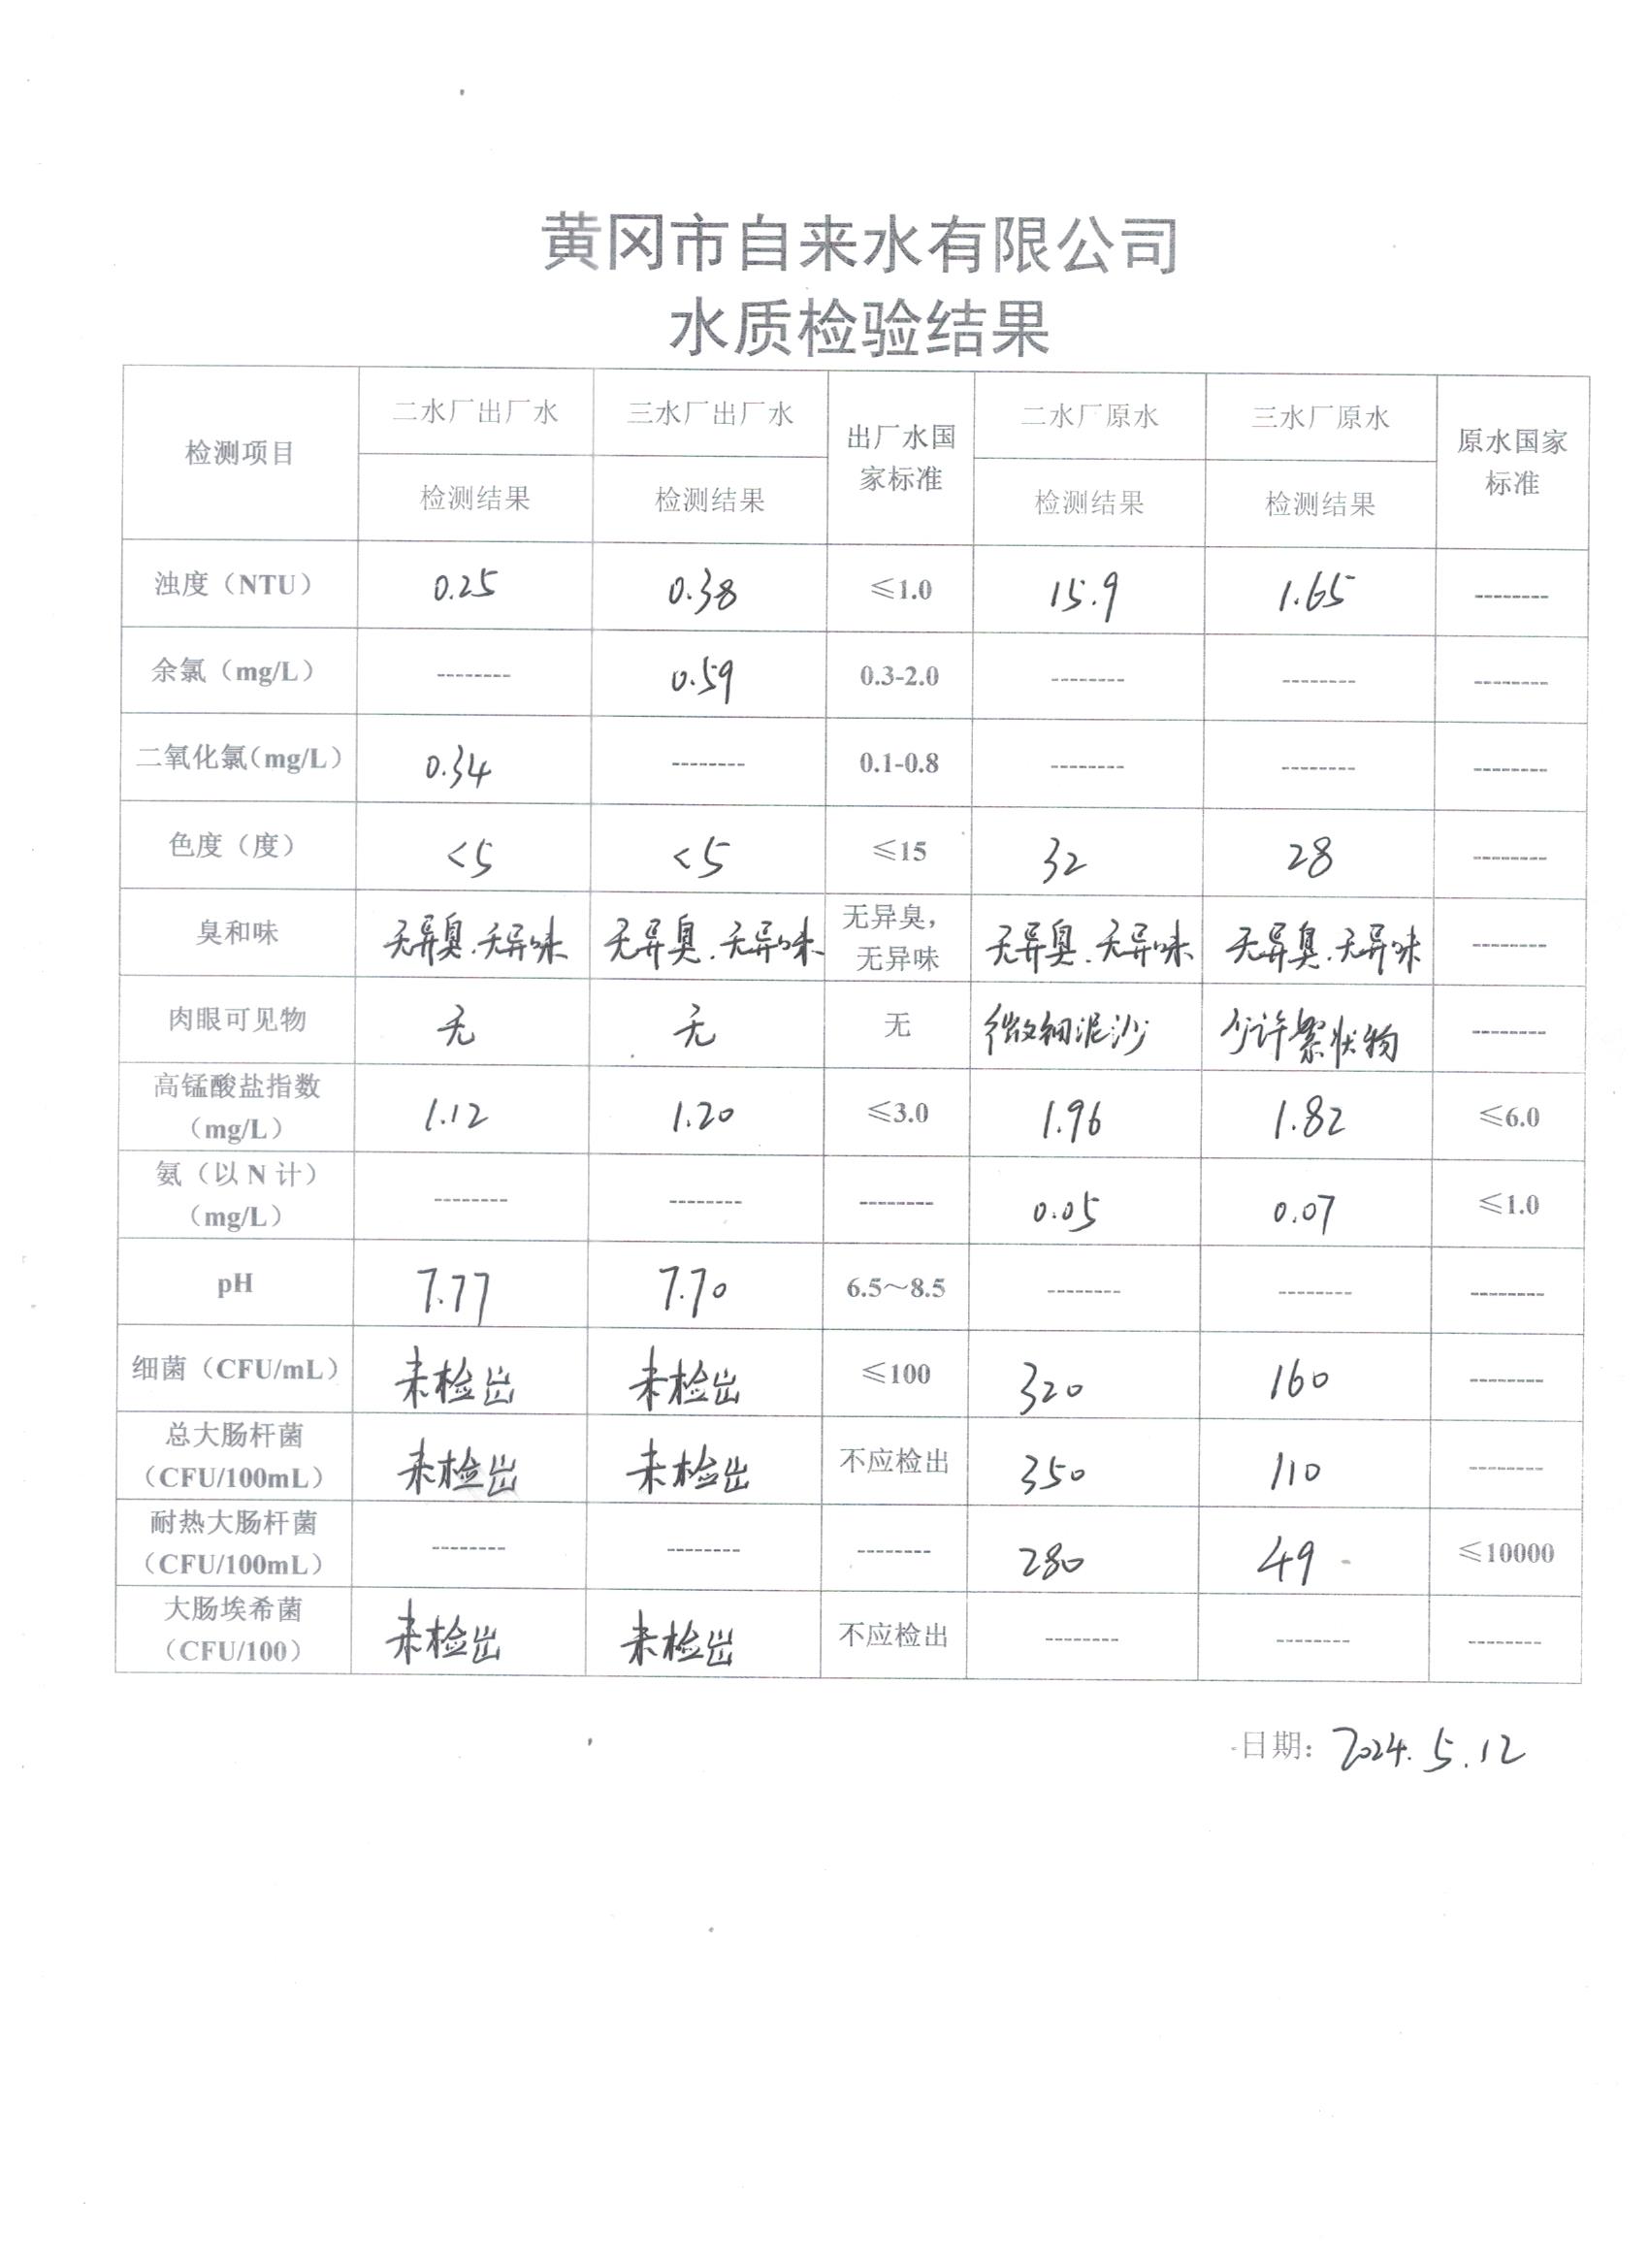 黄冈市自来水有限公司
水质检验结果
检测项目 二水厂出厂水 三水厂出厂水 出厂水国家标准 二水厂原水 三水厂原水 原水国家标准
检测结果 检测结果 检测结果 检测结果
浊度（NTU） 0.25 0.38 ≤1.0 15.9 1.65 --------
余氯（mg/L） -------- 0.59 0.3-2.0 -------- -------- --------
二氧化氯（mg/L） 0.34 -------- 0.1-0.8 -------- -------- --------
色度（度） <5 <5 ≤15 32 28 --------
臭和味 无异臭.无异味 无异臭.无异味 无异臭，无异味 无异臭.无异味 无异臭.无异味 --------
肉眼可见物 无 无 无 微细泥沙 少许絮状物 --------
高锰酸盐指数（mg/L） 1.12 1.20 ≤3.0 1.96 1.82 ≤6.0
氨（以 N 计）（mg/L） -------- -------- -------- 0.05 0.07 ≤1.0
pH 7.77 7.70 6.5～8.5 -------- -------- --------
细菌（CFU/mL） 未检出 未检出 ≤100 320 160 --------
总大肠杆菌（CFU/100mL） 未检出 未检出 不应检出 350 110 --------
耐热大肠杆菌（CFU/100mL） -------- -------- -------- 280 49 ≤10000
大肠埃希菌（CFU/100） 未检出 未检出 不应检出 -------- -------- --------
日期：2024.5.12